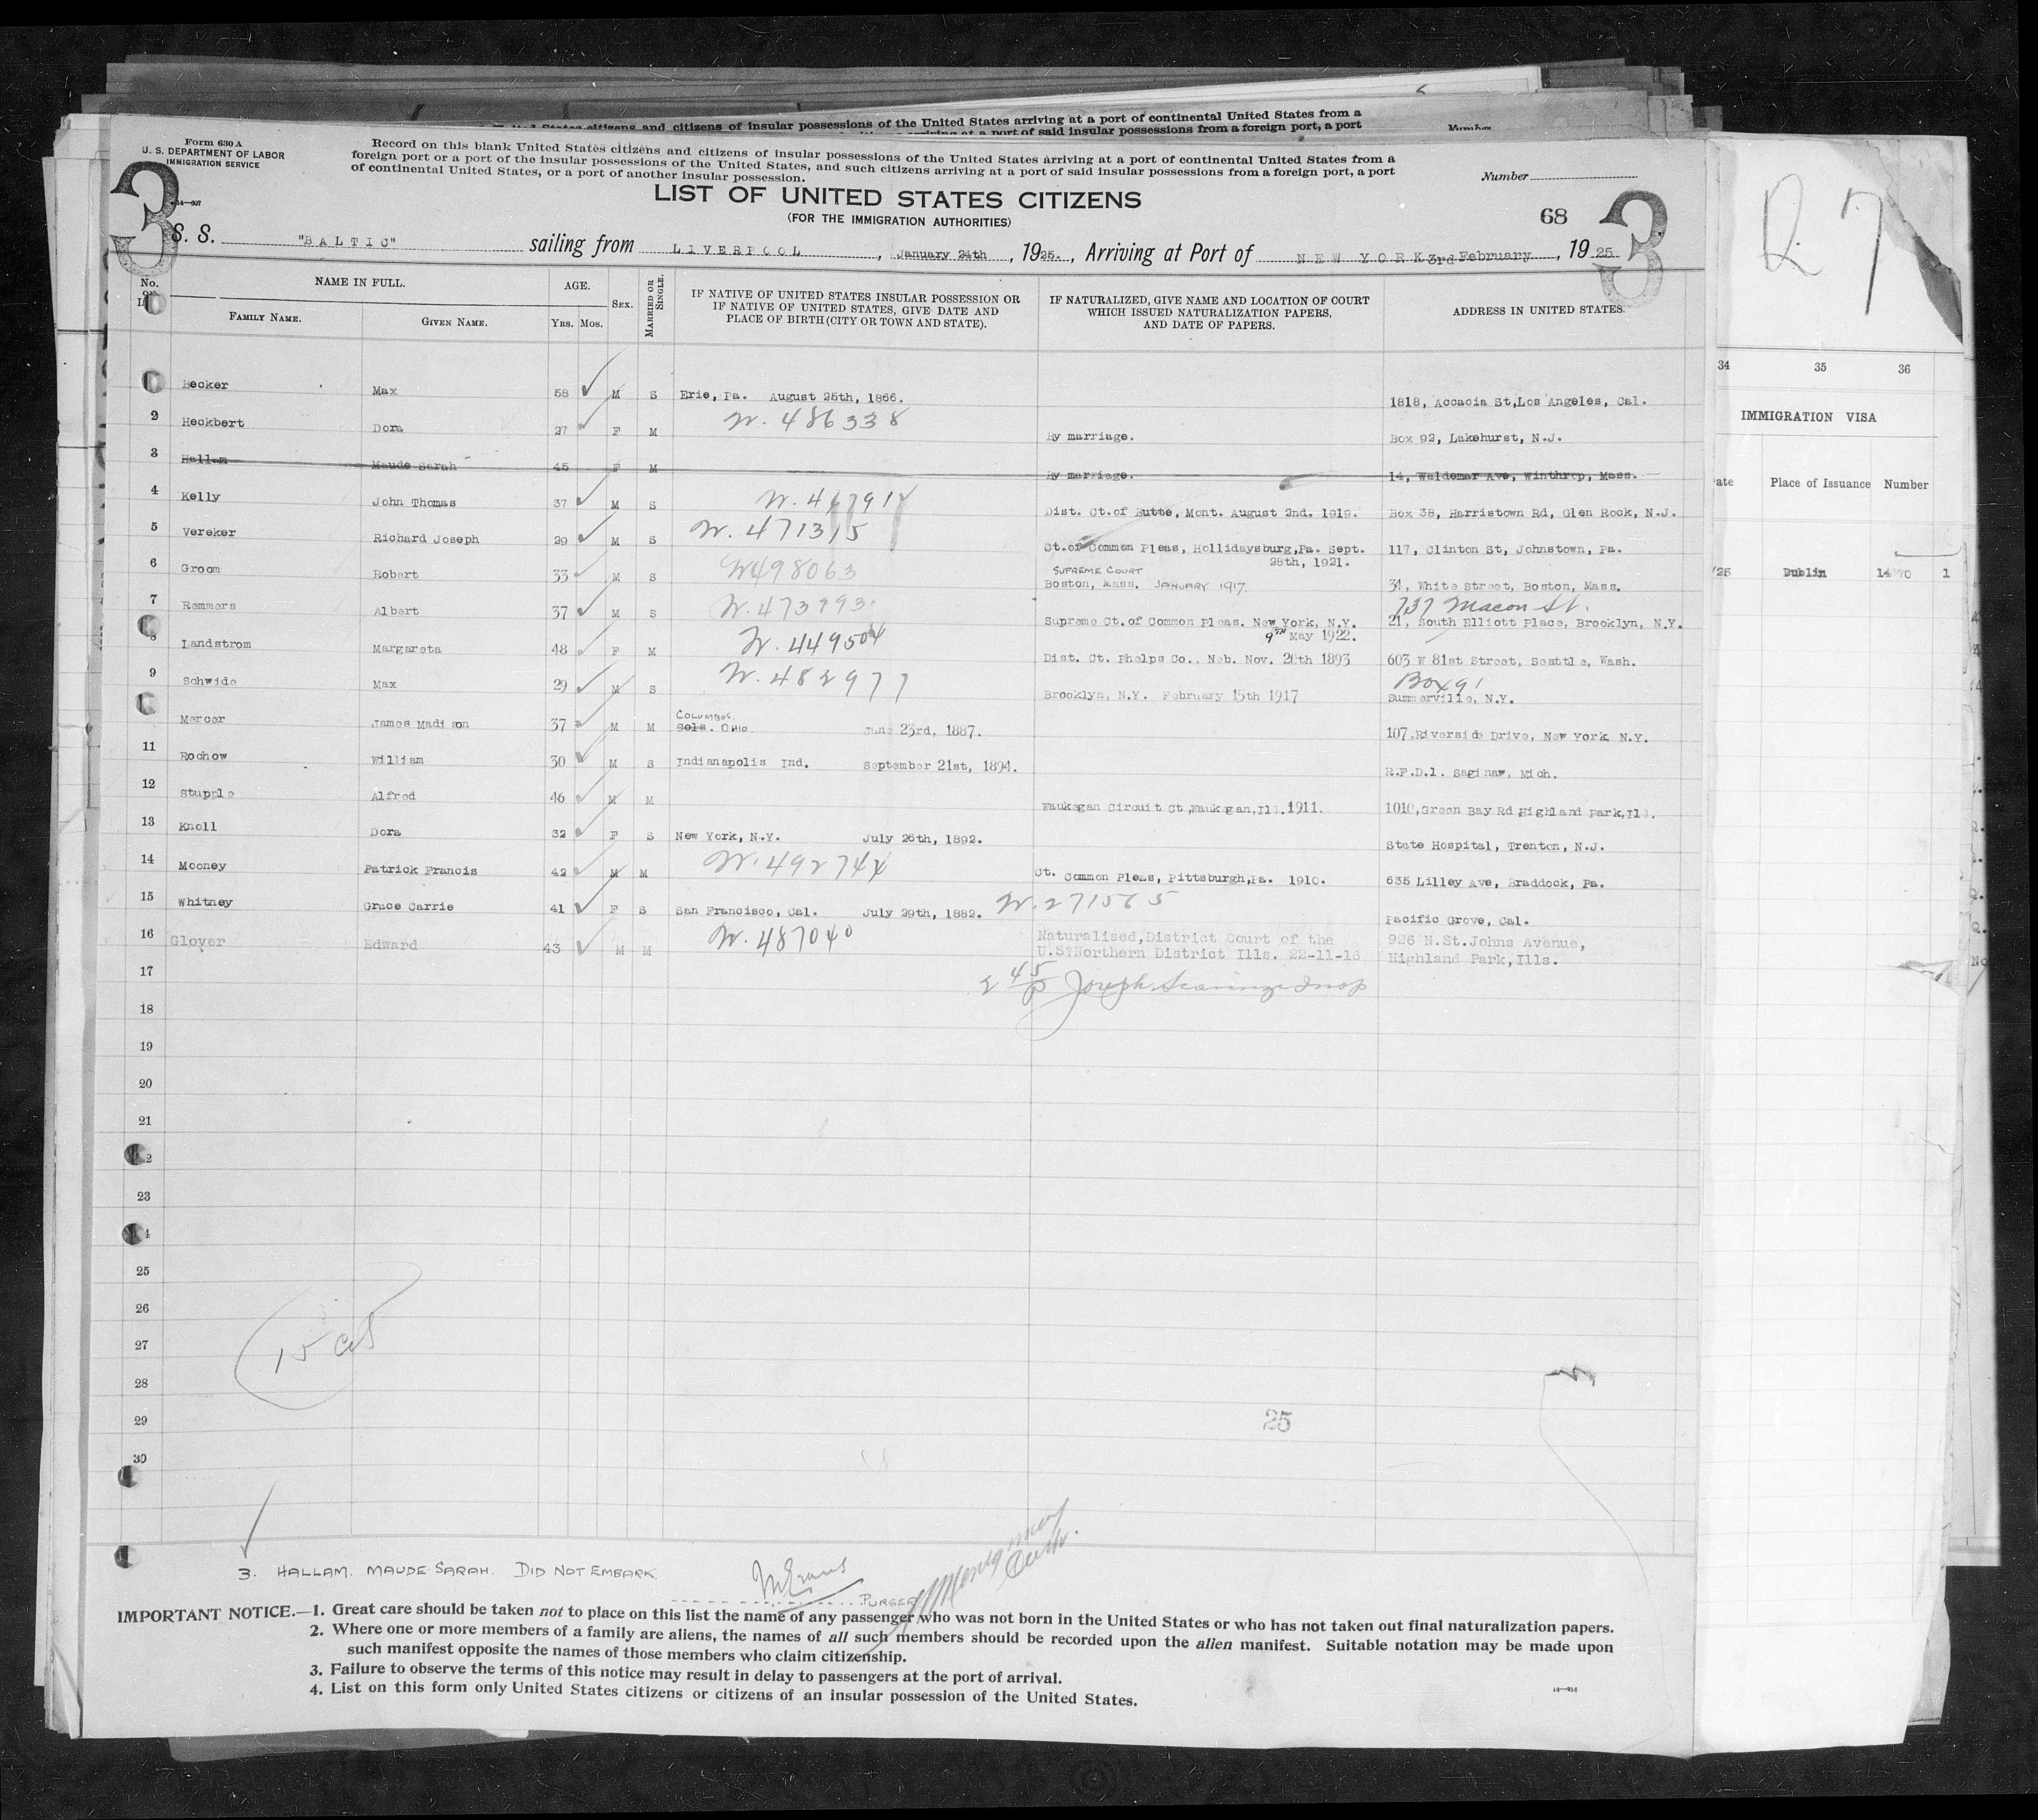 citizens and citizens of insular possessions of the United States arriving at a port of continental United States from a
at a port of said insular possessions from a foreign port, a port
Number
Form 630 A
U. S. DEPARTMENT OF LABOR
IMMIGRATION SERVICE
14—607
Record on this blank United States citizens and citizens of insular possessions of the United States arriving at a port of continental United States from a
foreign port or a port of the insular possessions of the United States, and such citizens arriving at a port of said insular possessions from a foreign port, a port
of continental United States, or a port of another insular possession.
Number
LIST OF UNITED STATES CITIZENS
(FOR THE IMMIGRATION AUTHORITIES)
3
68
3
S. S. "BALTIC" sailing from LIVERPOOL, January 24th, 1925., Arriving at Port of NEW YORK 3rd February, 1925
No.
NAME IN FULL.
AGE.
SEX.
MARRIED OR SINGLE.
IF NATIVE OF UNITED STATES INSULAR POSSESSION OR
IF NATIVE OF UNITED STATES, GIVE DATE AND
PLACE OF BIRTH (CITY OR TOWN AND STATE).
IF NATURALIZED, GIVE NAME AND LOCATION OF COURT
WHICH ISSUED NATURALIZATION PAPERS,
AND DATE OF PAPERS.
ADDRESS IN UNITED STATES.
FAMILY NAME.
GIVEN NAME.
YRS. MOS.
Becker Max 58 M S Erie, Pa. August 25th, 1866. 1818, Accacia St, Los Angeles, Cal.
2 Heckbert Dora 27 F M W. 486338 By marriage. Box 92, Lakehurst, N.J.
3 Hallam Maude Sarah 45 F M By marriage. 14, Waldemar Ave, Winthrop, Mass.
4 Kelly John Thomas 37 M S Dist. Ct. of Butte, Mont. August 2nd. 1919. Box 38, Harristown Rd, Glen Rock, N.J.
5 Vereker Richard Joseph 29 M S W. 471315 Ct. of Common Pleas, Hollidaysburg, Pa. Sept. 28th, 1921. 117, Clinton St, Johnstown, Pa.
6 Groom Robert 33 M S W498063 SUPREME COURT
Boston, Mass. JANUARY 1917. 34, White Street, Boston, Mass.
7 Remmers Albert 37 M S W. 473993 737 Macon St.
Supreme Ct. of Common Pleas. New York, N.Y. 9TH May 1922. 21, South Elliott Place, Brooklyn, N.Y.
8 Landstrom Margareta 48 F M W. 449504 Dist. Ct. Phelps Co., Neb. Nov. 20th 1893 603 W 81st Street, Seattle, Wash.
9 Schwide Max 29 M S W. 482977 Brooklyn, N.Y. February 15th 1917 Box 91
Summerville, N.Y.
Mercer James Madison 37 M M COLUMBUS.
Cols. OHIO June 23rd, 1887. 107, Riverside Drive, New York N.Y.
11 Rochow William 30 M S Indianapolis Ind. September 21st, 1894. R.F.D.1. Saginaw, Mich.
12 Stupple Alfred 46 M M Waukegan Circuit Ct, Waukegan, Ill. 1911. 1010, Green Bay Rd Highland Park, Ill.
13 Knoll Dora 32 F S New York, N.Y. July 26th, 1892. State Hospital, Trenton, N.J.
14 Mooney Patrick Francis 42 M M W. 492744 Ct. Common Pleas, Pittsburgh, Pa. 1910. 635 Lilley Ave, Braddock, Pa.
15 Whitney Grace Carrie 41 F S San Francisco, Cal. July 29th, 1882. Pacific Grove, Cal.
16 Glover Edward 43 M M W. 487040 Naturalised, District Court of the
U.S. Northern District Ills. 22-11-16 926 N. St. Johns Avenue,
Highland Park, Ills.
17
18
19
20
21
23
25
26
27
28
29
30
25
3. HALLAM. MAUDE SARAH. DID NOT EMBARK.
PURSER
IMPORTANT NOTICE.—1. Great care should be taken not to place on this list the name of any passenger who was not born in the United States or who has not taken out final naturalization papers.
2. Where one or more members of a family are aliens, the names of all such members should be recorded upon the alien manifest. Suitable notation may be made upon
such manifest opposite the names of those members who claim citizenship.
3. Failure to observe the terms of this notice may result in delay to passengers at the port of arrival.
4. List on this form only United States citizens or citizens of an insular possession of the United States.
34 35 36
IMMIGRATION VISA
Place of Issuance Number
Dublin